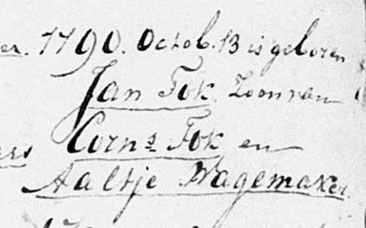 er. 1790. Octob. 13 is geboren
Jan Fok. Zoon van
Corns Fok en
Aaltje Wagemaker